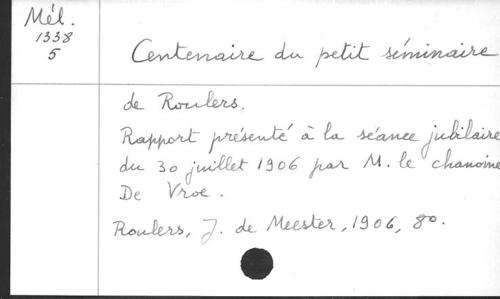 Mél.
1338
5
Centenaire du petit séminaire
de Roulers.
Rapport présenté à la séance jubilaire
du 30 juillet 1906 par M. le chanoine
De Vroe.
Roulers, J. de Meester, 1906, 8o.